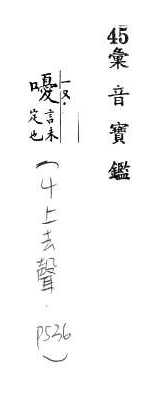 45彙音寶鑑
一又.
嚘 言未定也
(ㄐ上去聲.P536)